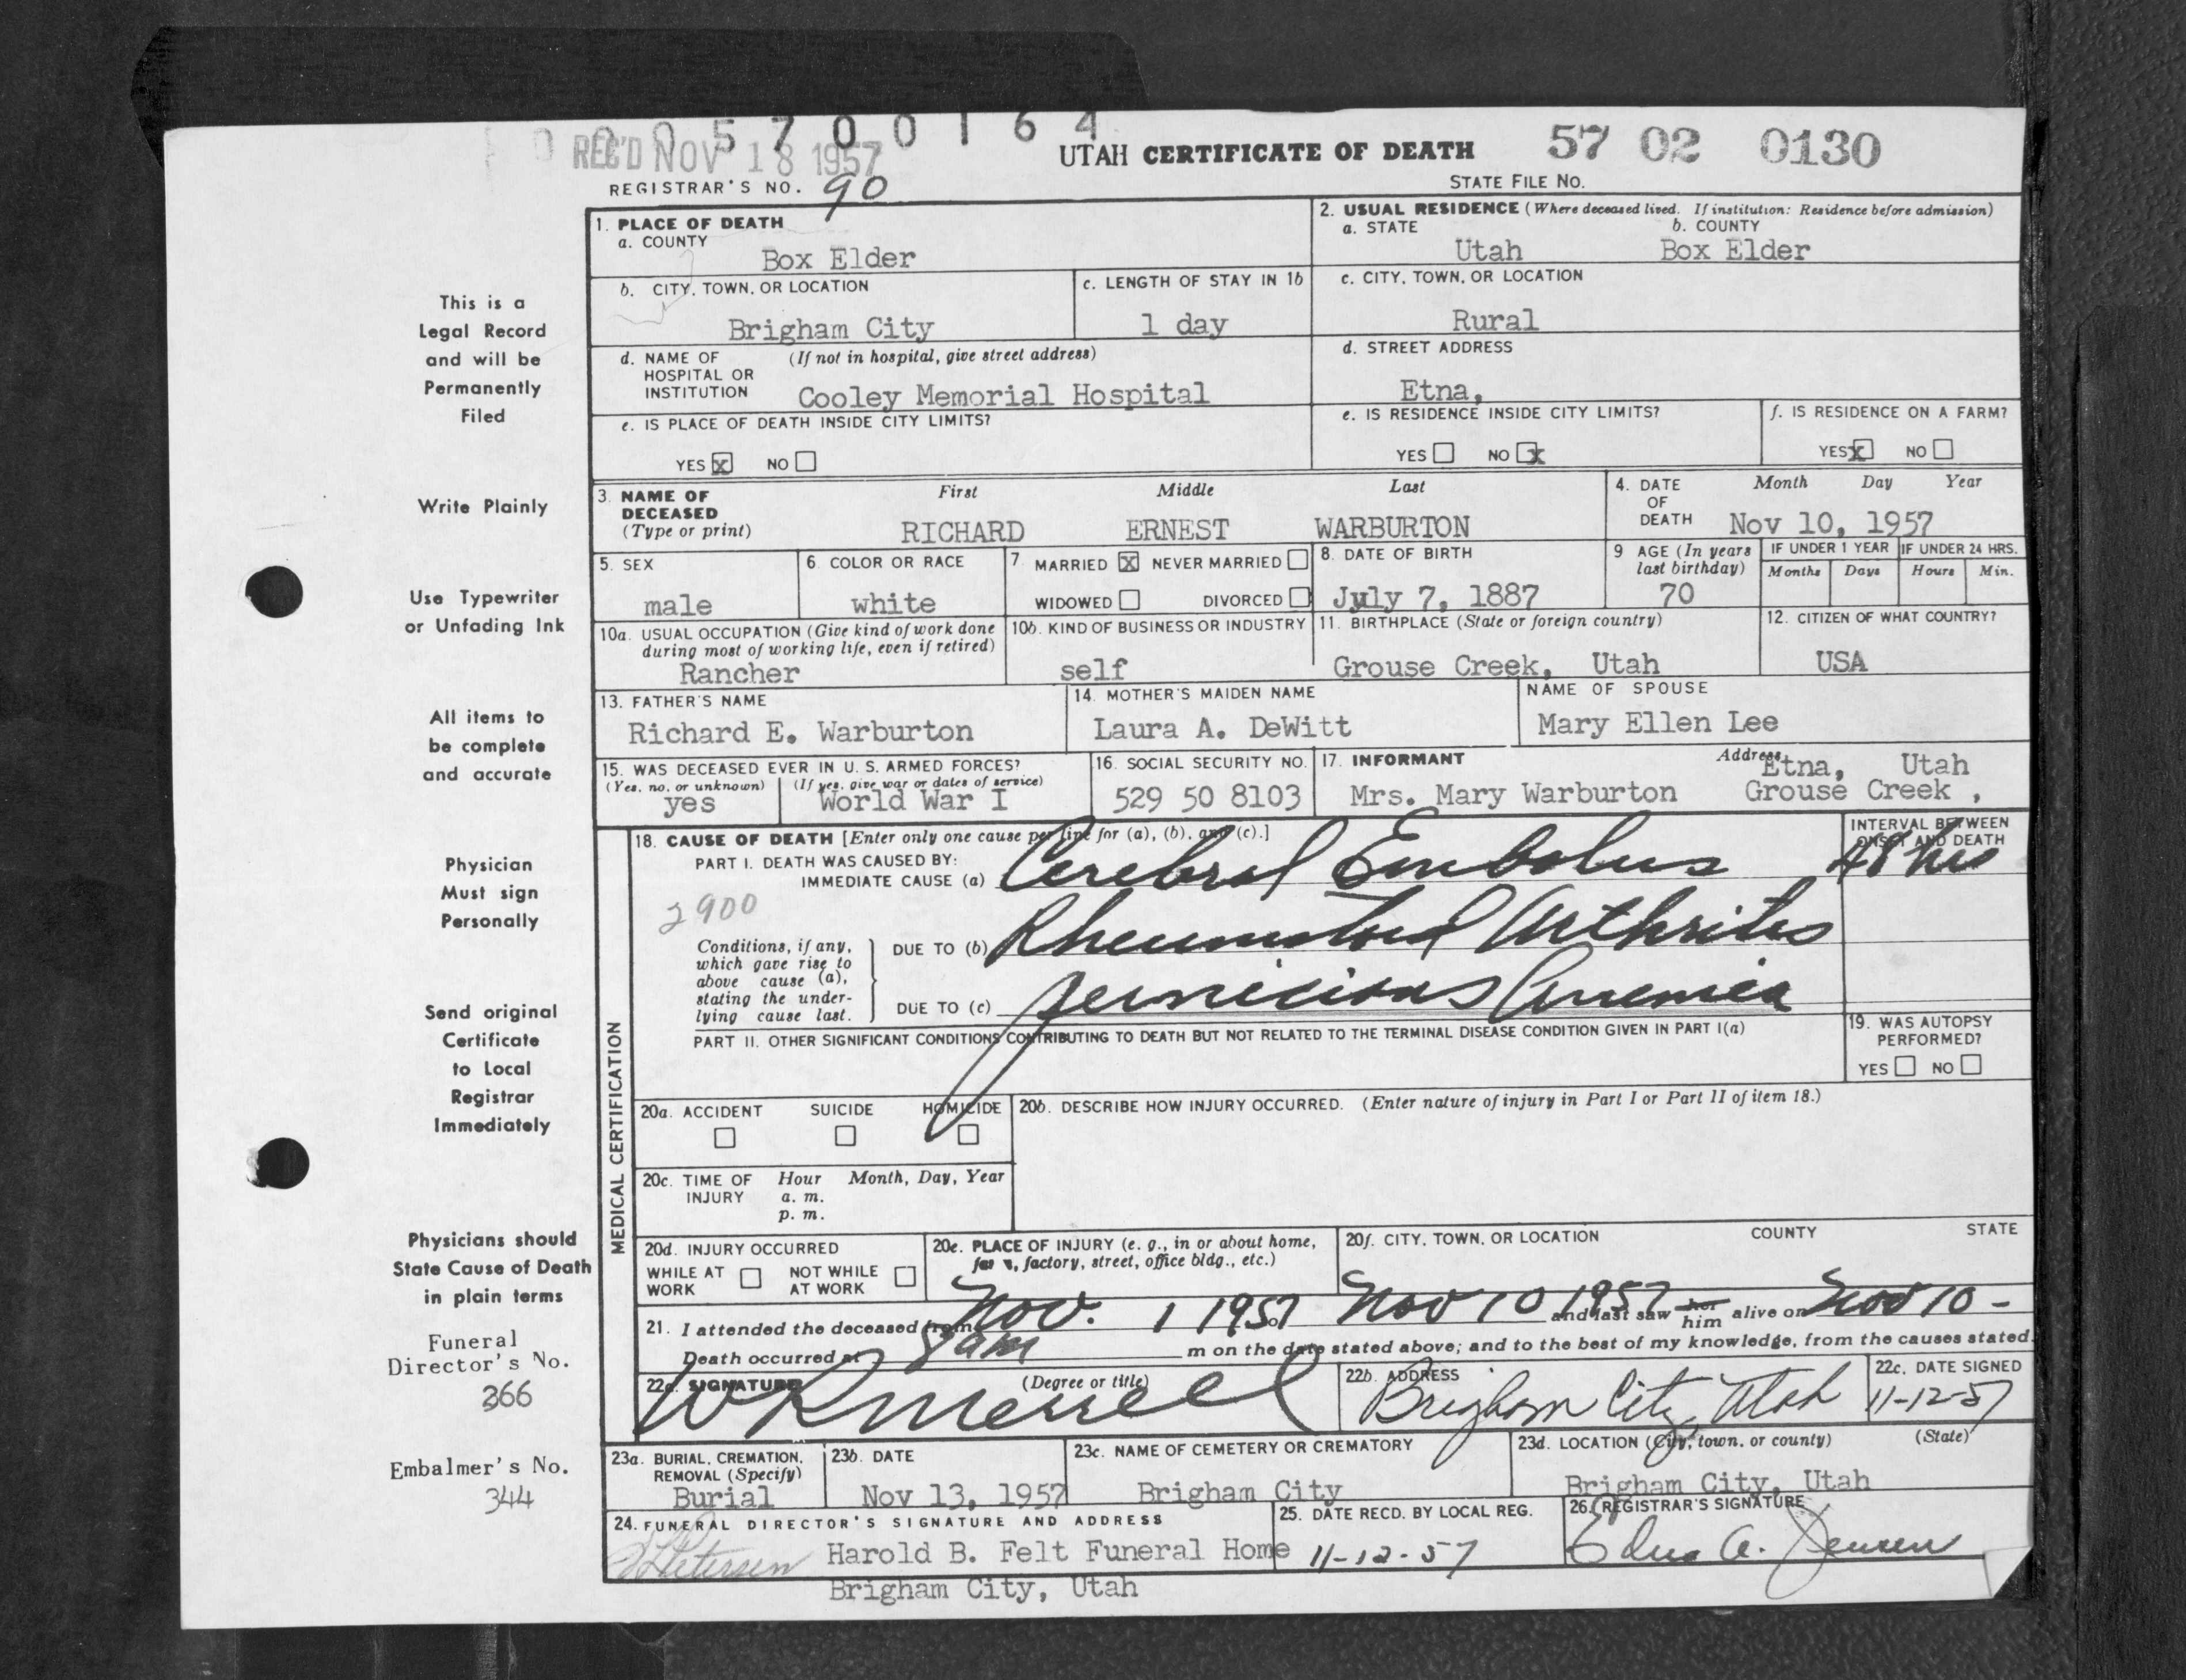 0005700164
REC'D NOV 18 1957
UTAH CERTIFICATE OF DEATH
57 02 0130
REGISTRAR'S NO. 90
STATE FILE No.
This is a
Legal Record
and will be
Permanently
Filed
Write Plainly
Use Typewriter
or Unfading Ink
All items to
be complete
and accurate
Physician
Must sign
Personally
Send original
Certificate
to Local
Registrar
Immediately
Physicians should
State Cause of Death
in plain terms
Funeral
Director's No.
366
Embalmer's No.
344
1. PLACE OF DEATH
a. COUNTY
Box Elder
2. USUAL RESIDENCE (Where deceased lived. If institution: Residence before admission)
a. STATE b. COUNTY
Utah Box Elder
b. CITY, TOWN, OR LOCATION
Brigham City
c. LENGTH OF STAY IN 1b
1 day
c. CITY, TOWN, OR LOCATION
Rural
d. NAME OF (If not in hospital, give street address)
HOSPITAL OR
INSTITUTION Cooley Memorial Hospital
d. STREET ADDRESS
Etna,
e. IS PLACE OF DEATH INSIDE CITY LIMITS?
YES X NO
e. IS RESIDENCE INSIDE CITY LIMITS?
YES NO X
f. IS RESIDENCE ON A FARM?
YES X NO
3. NAME OF First Middle Last
DECEASED
(Type or print) RICHARD ERNEST WARBURTON
4. DATE Month Day Year
OF
DEATH Nov 10, 1957
5. SEX
male
6. COLOR OR RACE
white
7. MARRIED X NEVER MARRIED
WIDOWED DIVORCED
8. DATE OF BIRTH
July 7, 1887
9 AGE (In years
last birthday)
70
IF UNDER 1 YEAR IF UNDER 24 HRS.
Months Days Hours Min.
10a. USUAL OCCUPATION (Give kind of work done
during most of working life, even if retired)
Rancher
10b. KIND OF BUSINESS OR INDUSTRY
self
11. BIRTHPLACE (State or foreign country)
Grouse Creek, Utah
12. CITIZEN OF WHAT COUNTRY?
USA
13. FATHER'S NAME
Richard E. Warburton
14. MOTHER'S MAIDEN NAME
Laura A. DeWitt
NAME OF SPOUSE
Mary Ellen Lee
15. WAS DECEASED EVER IN U. S. ARMED FORCES?
(Yes, no, or unknown) (If yes, give war or dates of service)
yes World War I
16. SOCIAL SECURITY NO.
529 50 8103
17. INFORMANT Address
Etna, Utah
Mrs. Mary Warburton Grouse Creek ,
MEDICAL CERTIFICATION
18. CAUSE OF DEATH [Enter only one cause per line for (a), (b), and (c).]
INTERVAL BETWEEN
ONSET AND DEATH
PART I. DEATH WAS CAUSED BY:
IMMEDIATE CAUSE (a) Cerebral Embolus 48 hrs
2900
Conditions, if any,
which gave rise to
above cause (a),
stating the under-
lying cause last.
DUE TO (b) Rheumatoid Arthritis
DUE TO (c) pernicious Anemia
PART II. OTHER SIGNIFICANT CONDITIONS CONTRIBUTING TO DEATH BUT NOT RELATED TO THE TERMINAL DISEASE CONDITION GIVEN IN PART I(a)
19. WAS AUTOPSY
PERFORMED?
YES NO
20a. ACCIDENT SUICIDE HOMICIDE
20b. DESCRIBE HOW INJURY OCCURRED. (Enter nature of injury in Part I or Part II of item 18.)
20c. TIME OF Hour Month, Day, Year
INJURY a. m.
p. m.
20d. INJURY OCCURRED
WHILE AT NOT WHILE
WORK AT WORK
20e. PLACE OF INJURY (e. g., in or about home,
farm, factory, street, office bldg., etc.)
20f. CITY, TOWN, OR LOCATION COUNTY STATE
21. I attended the deceased from Nov. 1 1957 to Nov 10 1957 and last saw her him alive on Nov 10 -
Death occurred at 8 am m on the date stated above; and to the best of my knowledge, from the causes stated.
22a. SIGNATURE (Degree or title)
W R Merrell
22b. ADDRESS
Brigham City, Utah
22c. DATE SIGNED
11-12-57
23a. BURIAL, CREMATION,
REMOVAL (Specify)
Burial
23b. DATE
Nov 13, 1957
23c. NAME OF CEMETERY OR CREMATORY
Brigham City
23d. LOCATION (City, town, or county) (State)
Brigham City, Utah
24. FUNERAL DIRECTOR'S SIGNATURE AND ADDRESS
Petersen Harold B. Felt Funeral Home
Brigham City, Utah
25. DATE RECD. BY LOCAL REG.
11-12-57
26. REGISTRAR'S SIGNATURE
Edna A. Jensen